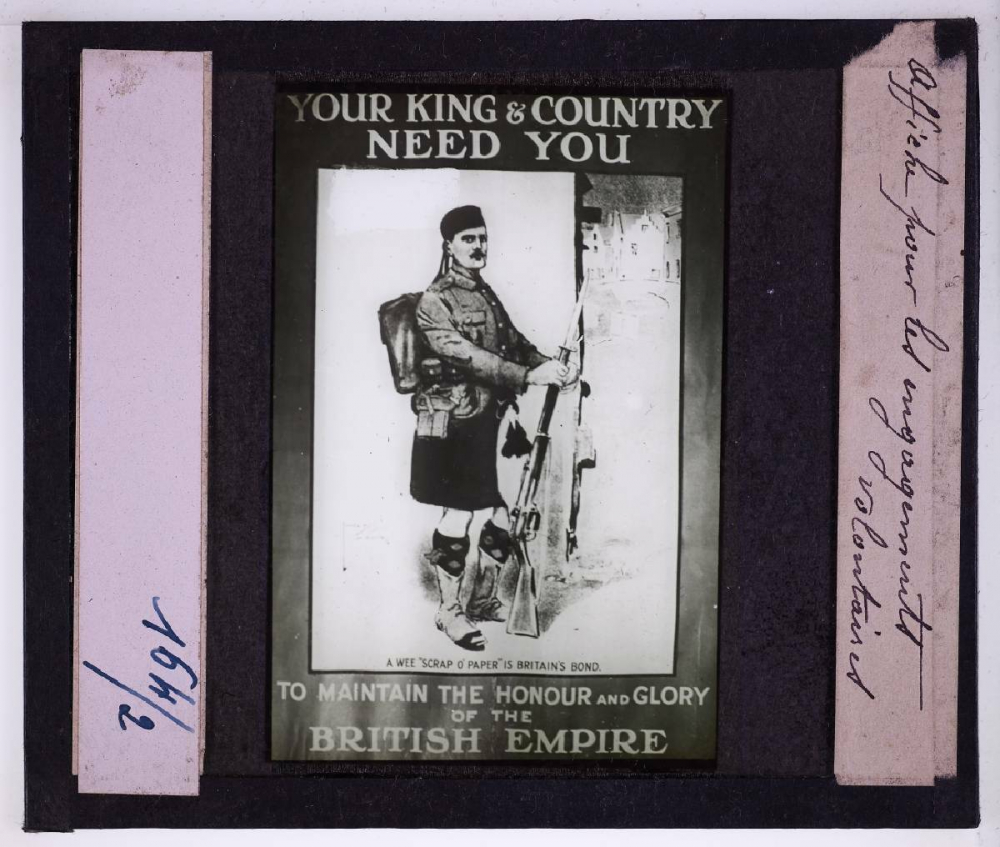 YOUR KING & COUNTRY
NEED YOU
A WEE "SCRAP O' PAPER" IS BRITAIN'S BOND.
TO MAINTAIN THE HONOUR AND GLORY
OF THE
BRITISH EMPIRE
164/2
Affiche pour les engagements
volontaires